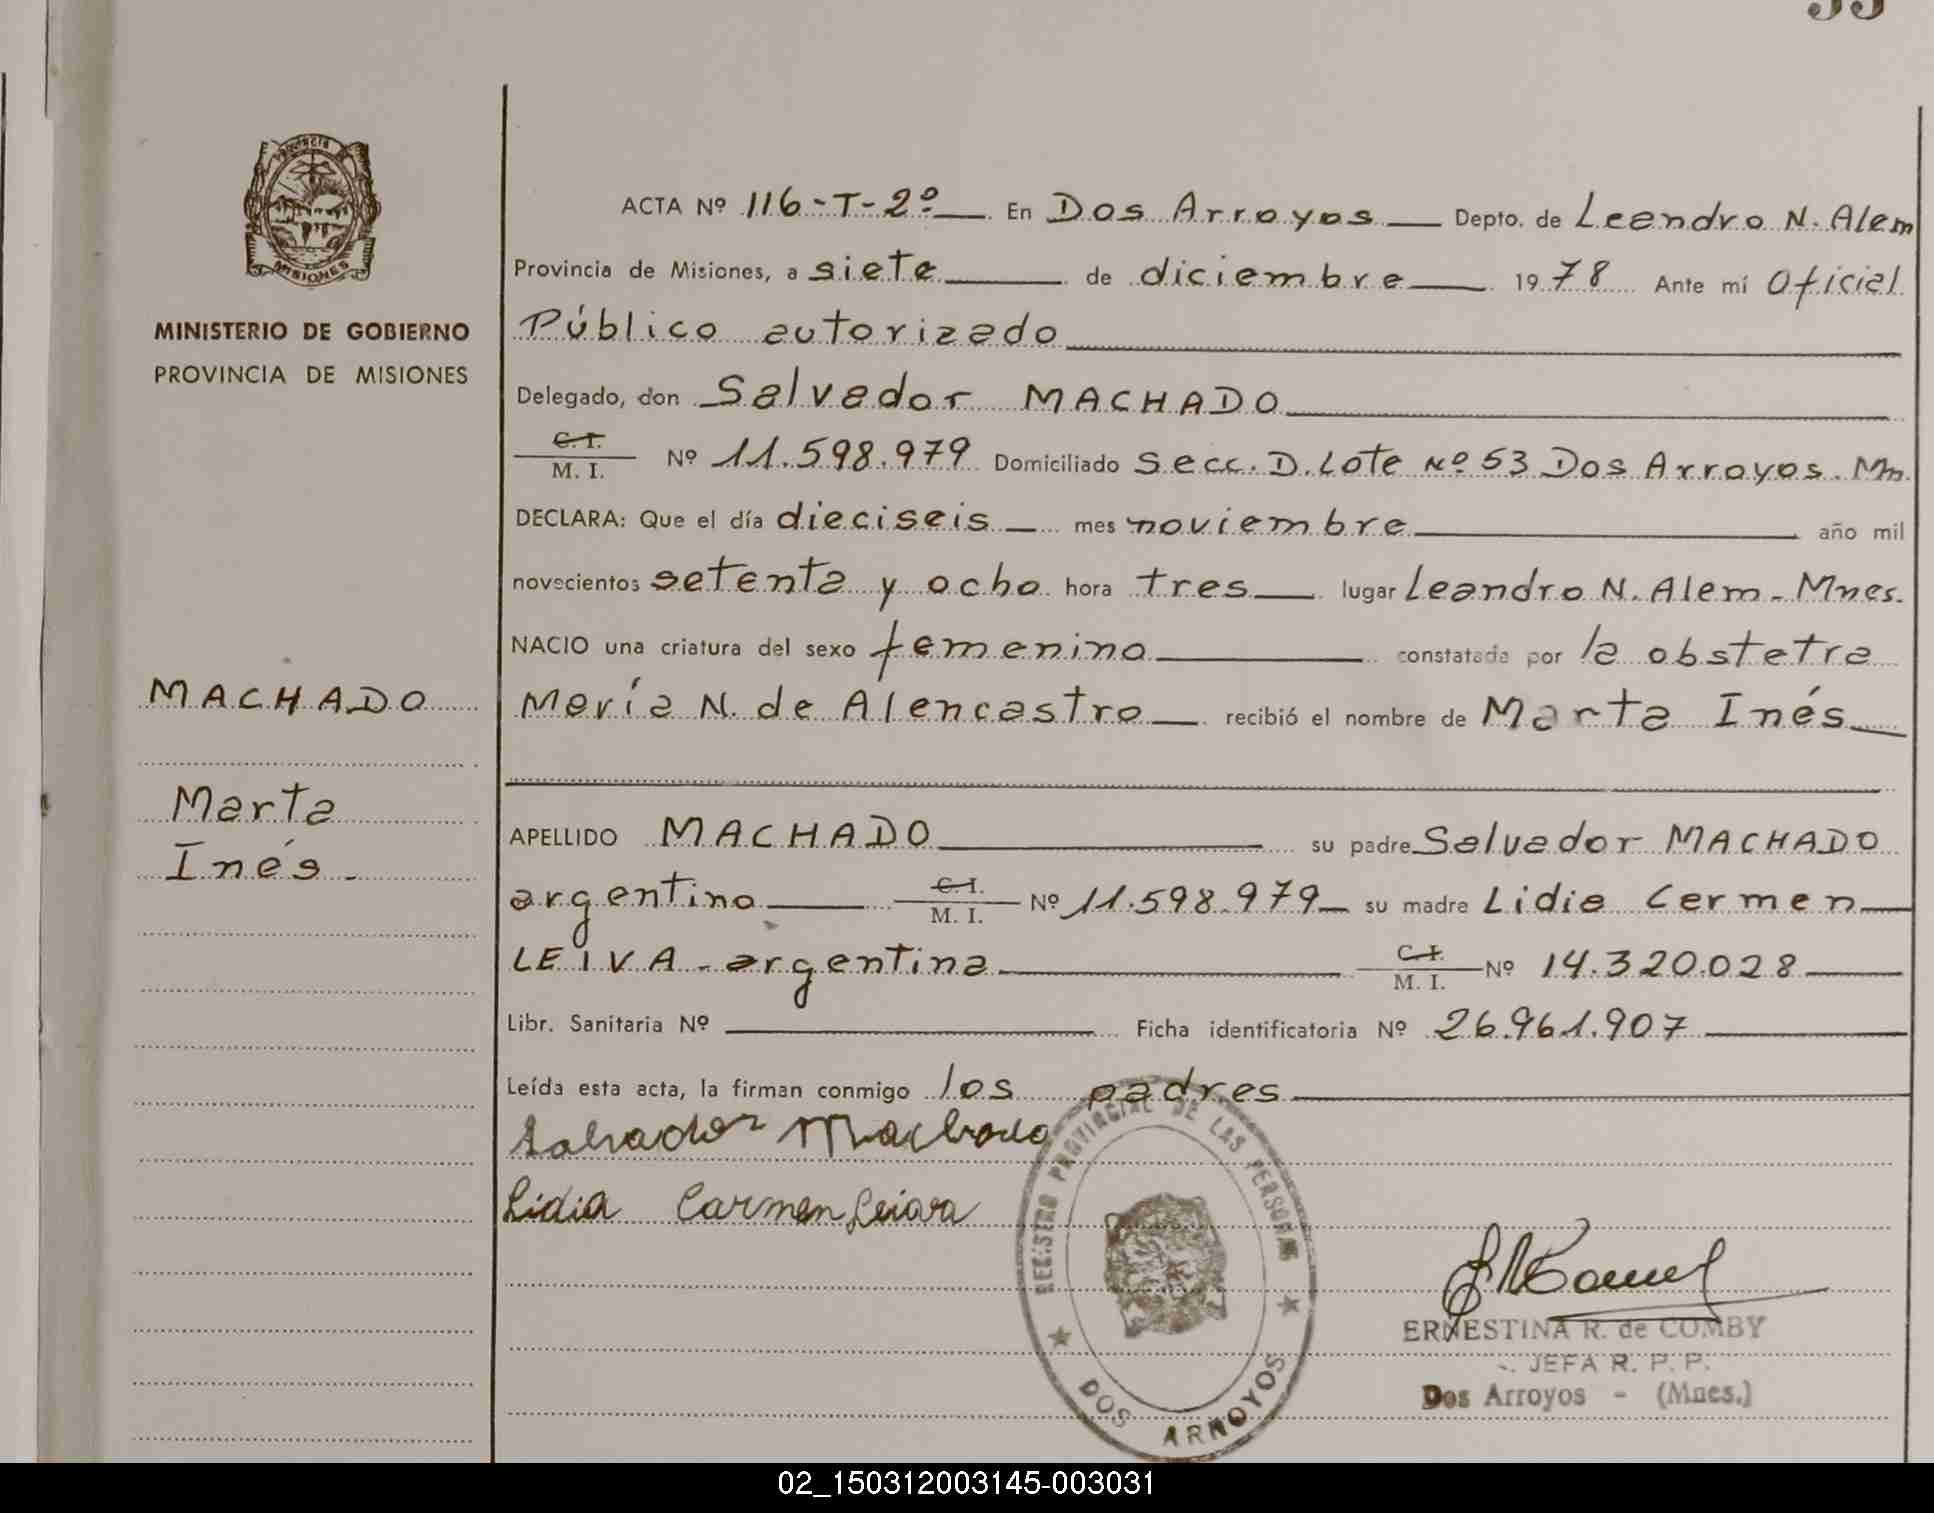 33
PROVINCIA DE
MISIONES
MINISTERIO DE GOBIERNO
PROVINCIA DE MISIONES
MACHADO
Marta
Inés.
ACTA Nº 116-T-2º En Dos Arroyos Depto. de Leandro N. Alem
Provincia de Misiones, a siete de diciembre 1978 Ante mí Oficial
Público autorizado
Delegado, don Salvador MACHADO
C. I.
M. I. Nº 11.598.979 Domiciliado Secc. D. Lote Nº 53 Dos Arroyos. Mn.
DECLARA: Que el día dieciseis mes noviembre año mil
novecientos setenta y ocho hora tres lugar Leandro N. Alem - Mnes.
NACIO una criatura del sexo femenino constatada por la obstetra
María N. de Alencastro recibió el nombre de Marta Inés
APELLIDO MACHADO su padre Salvador MACHADO
argentino C. I. M. I. Nº 11.598.979 su madre Lidia Carmen
LEIVA - argentina C. I. M. I. Nº 14.320.028
Libr. Sanitaria Nº Ficha identificatoria Nº 26.961.907
Leída esta acta, la firman conmigo los padres
Salvador Machado
Lidia Carmen Leiva
REGISTRO PROVINCIAL DE LAS PERSONAS
DOS ARROYOS
ERNESTINA R. de COMBY
JEFA R. P. P.
Dos Arroyos - (Mnes.)
02_150312003145-003031